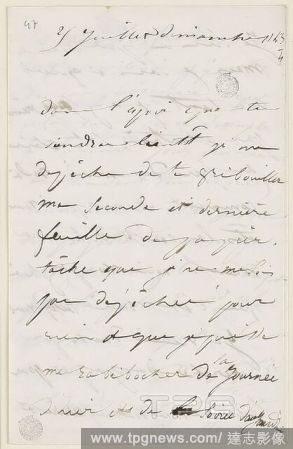 47
25 juillet dimanche 1843
dans l'espoir que tu
viendras bientôt je me
dépêche de te gribouiller
ma seconde et dernière
feuille de papier.
tâche que je ne me sois
pas dépêchée pour
rien et que je puisse
me rabibocher de la journée
d'hier et de la soirée
www.tpgnews.com / 達志影像